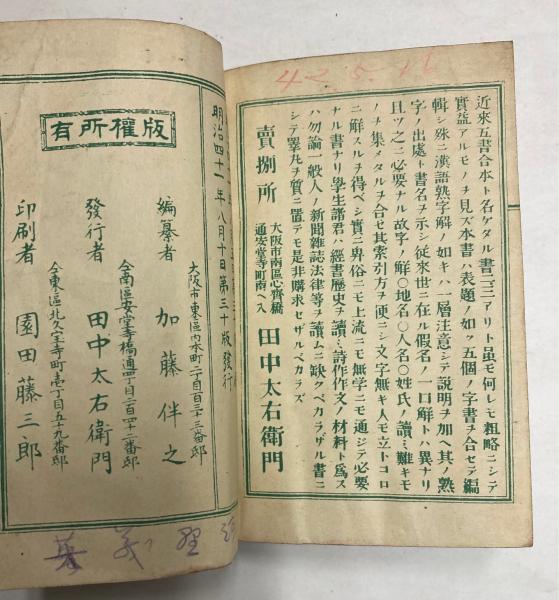 42 5. 16
近來五書合本ト名ケタル書二三アリト虽モ何レモ粗略ニシテ
實益アルモノヲ見ズ本書ハ表題ノ如ク五個ノ字書ヲ合セテ編
輯シ殊ニ漢語熟字解ノ如キハ一層注意シテ説明ヲ加ヘ其ノ熟
字ノ出處ト書名ヲ示シ從來世ニ在ル假名ノ一口解トハ異ナリ
且ツ之ニ必要ナル故字ノ解〇地名〇人名〇姓氏ノ讀ミ難キモ
ノヲ集メタルヲ合セ其索引方ヲ便ニシ文字無キ人モ立トコロ
ニ解スルヲ得ベシ實ニ卑俗ニモ上流ニモ無學ニモ通ジテ必要
ナル書ナリ學生諸君ハ經書歴史ヲ讀ミ詩作作文ノ材料ト爲ス
ハ勿論一般人ノ新聞雜誌法律等ヲ讀ムニ缺クベカラザル書ニ
シテ睪丸ヲ質ニ置テモ是非購求セザルベカラズ
賣捌所
大阪市南區心齋橋
通安堂寺町南ヘ入
田中太右衛門
明治四十一年八月十日第三十版發行
版權所有
大阪市東區内本町二丁目百二十三番邸
編纂者 加藤伴之
仝南區安堂寺橋通四丁目二百四十二番邸
發行者 田中太右衛門
仝東區北久宝寺町壱丁目五十九番邸
印刷者 園田藤三郎
義